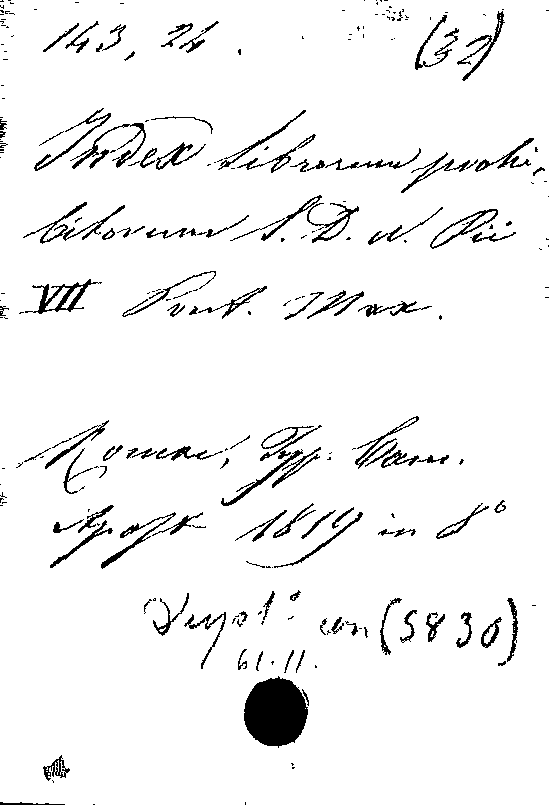 143, 24. (32)
Index Librorum prohi-
bitorum S. D. N. Pii
VII Pont. Max.
Romae, Typ. Cam.
Apost 1819 in 8°
con (5830)
61.11.